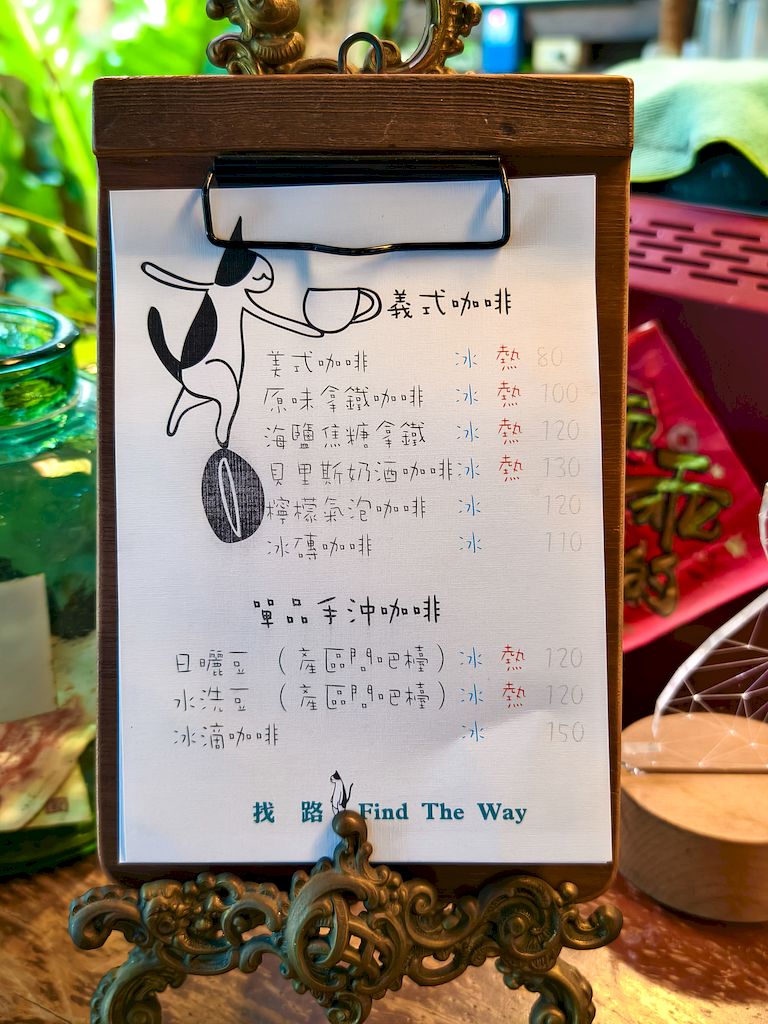 義式咖啡
美式咖啡 冰 熱 80
原味拿鐵咖啡 冰 熱 100
海鹽焦糖拿鐵 冰 熱 120
貝里斯奶酒咖啡 冰 熱 130
檸檬氣泡咖啡 冰 120
冰磚咖啡 冰 110
單品手沖咖啡
日曬豆 (產區問吧檯) 冰 熱 120
水洗豆 (產區問吧檯) 冰 熱 120
冰滴咖啡 冰 150
找 路 Find The Way